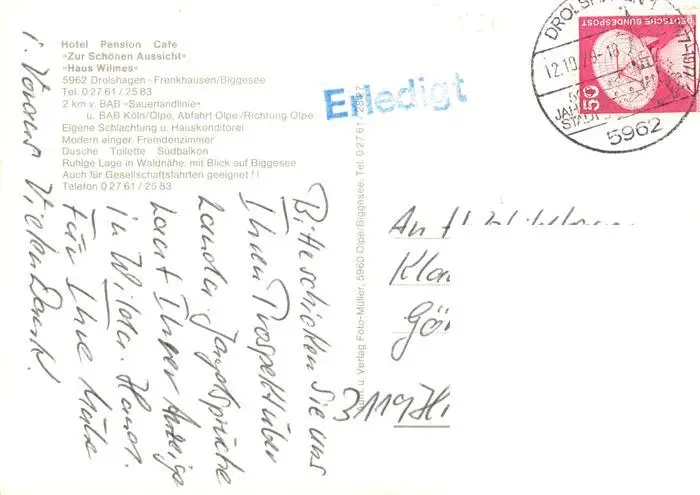 Hotel Pension Cafe
»Zur Schönen Aussicht«
»Haus Wilmes«
5962 Drolshagen - Frenkhausen/Biggesee
Telefon 0 27 61 / 25 83
2 km v. BAB »Sauerlandlinie«
u. BAB Köln/Olpe, Abfahrt Olpe /Richtung Olpe
Eigene Schlachtung u. Hauskonditorei
Modern einger. Fremdenzimmer
Dusche Toilette Südbalkon
Ruhige Lage in Waldnähe, mit Blick auf Biggesee
Auch für Gesellschaftsfahrten geeignet !!
Telefon 0 27 61 / 25 83
Erledigt
u. Verlag Foto-Müller, 5960 Olpe/Biggesee, Tel. 0 27 61 / 28 27
DEUTSCHE BUNDESPOST
50
DROLSHAGEN
12.10.
JAHRE
STADT
5962
Bitte schicken Sie uns
Ihren Prospekt über
Lauder. Jagdsprüche
Laut Ihrer Anzeige
in Wild u. Hund.
Für Ihre Mühe
i. Voraus Vielen Dank.
An
Kla
Gör
3119 Hi